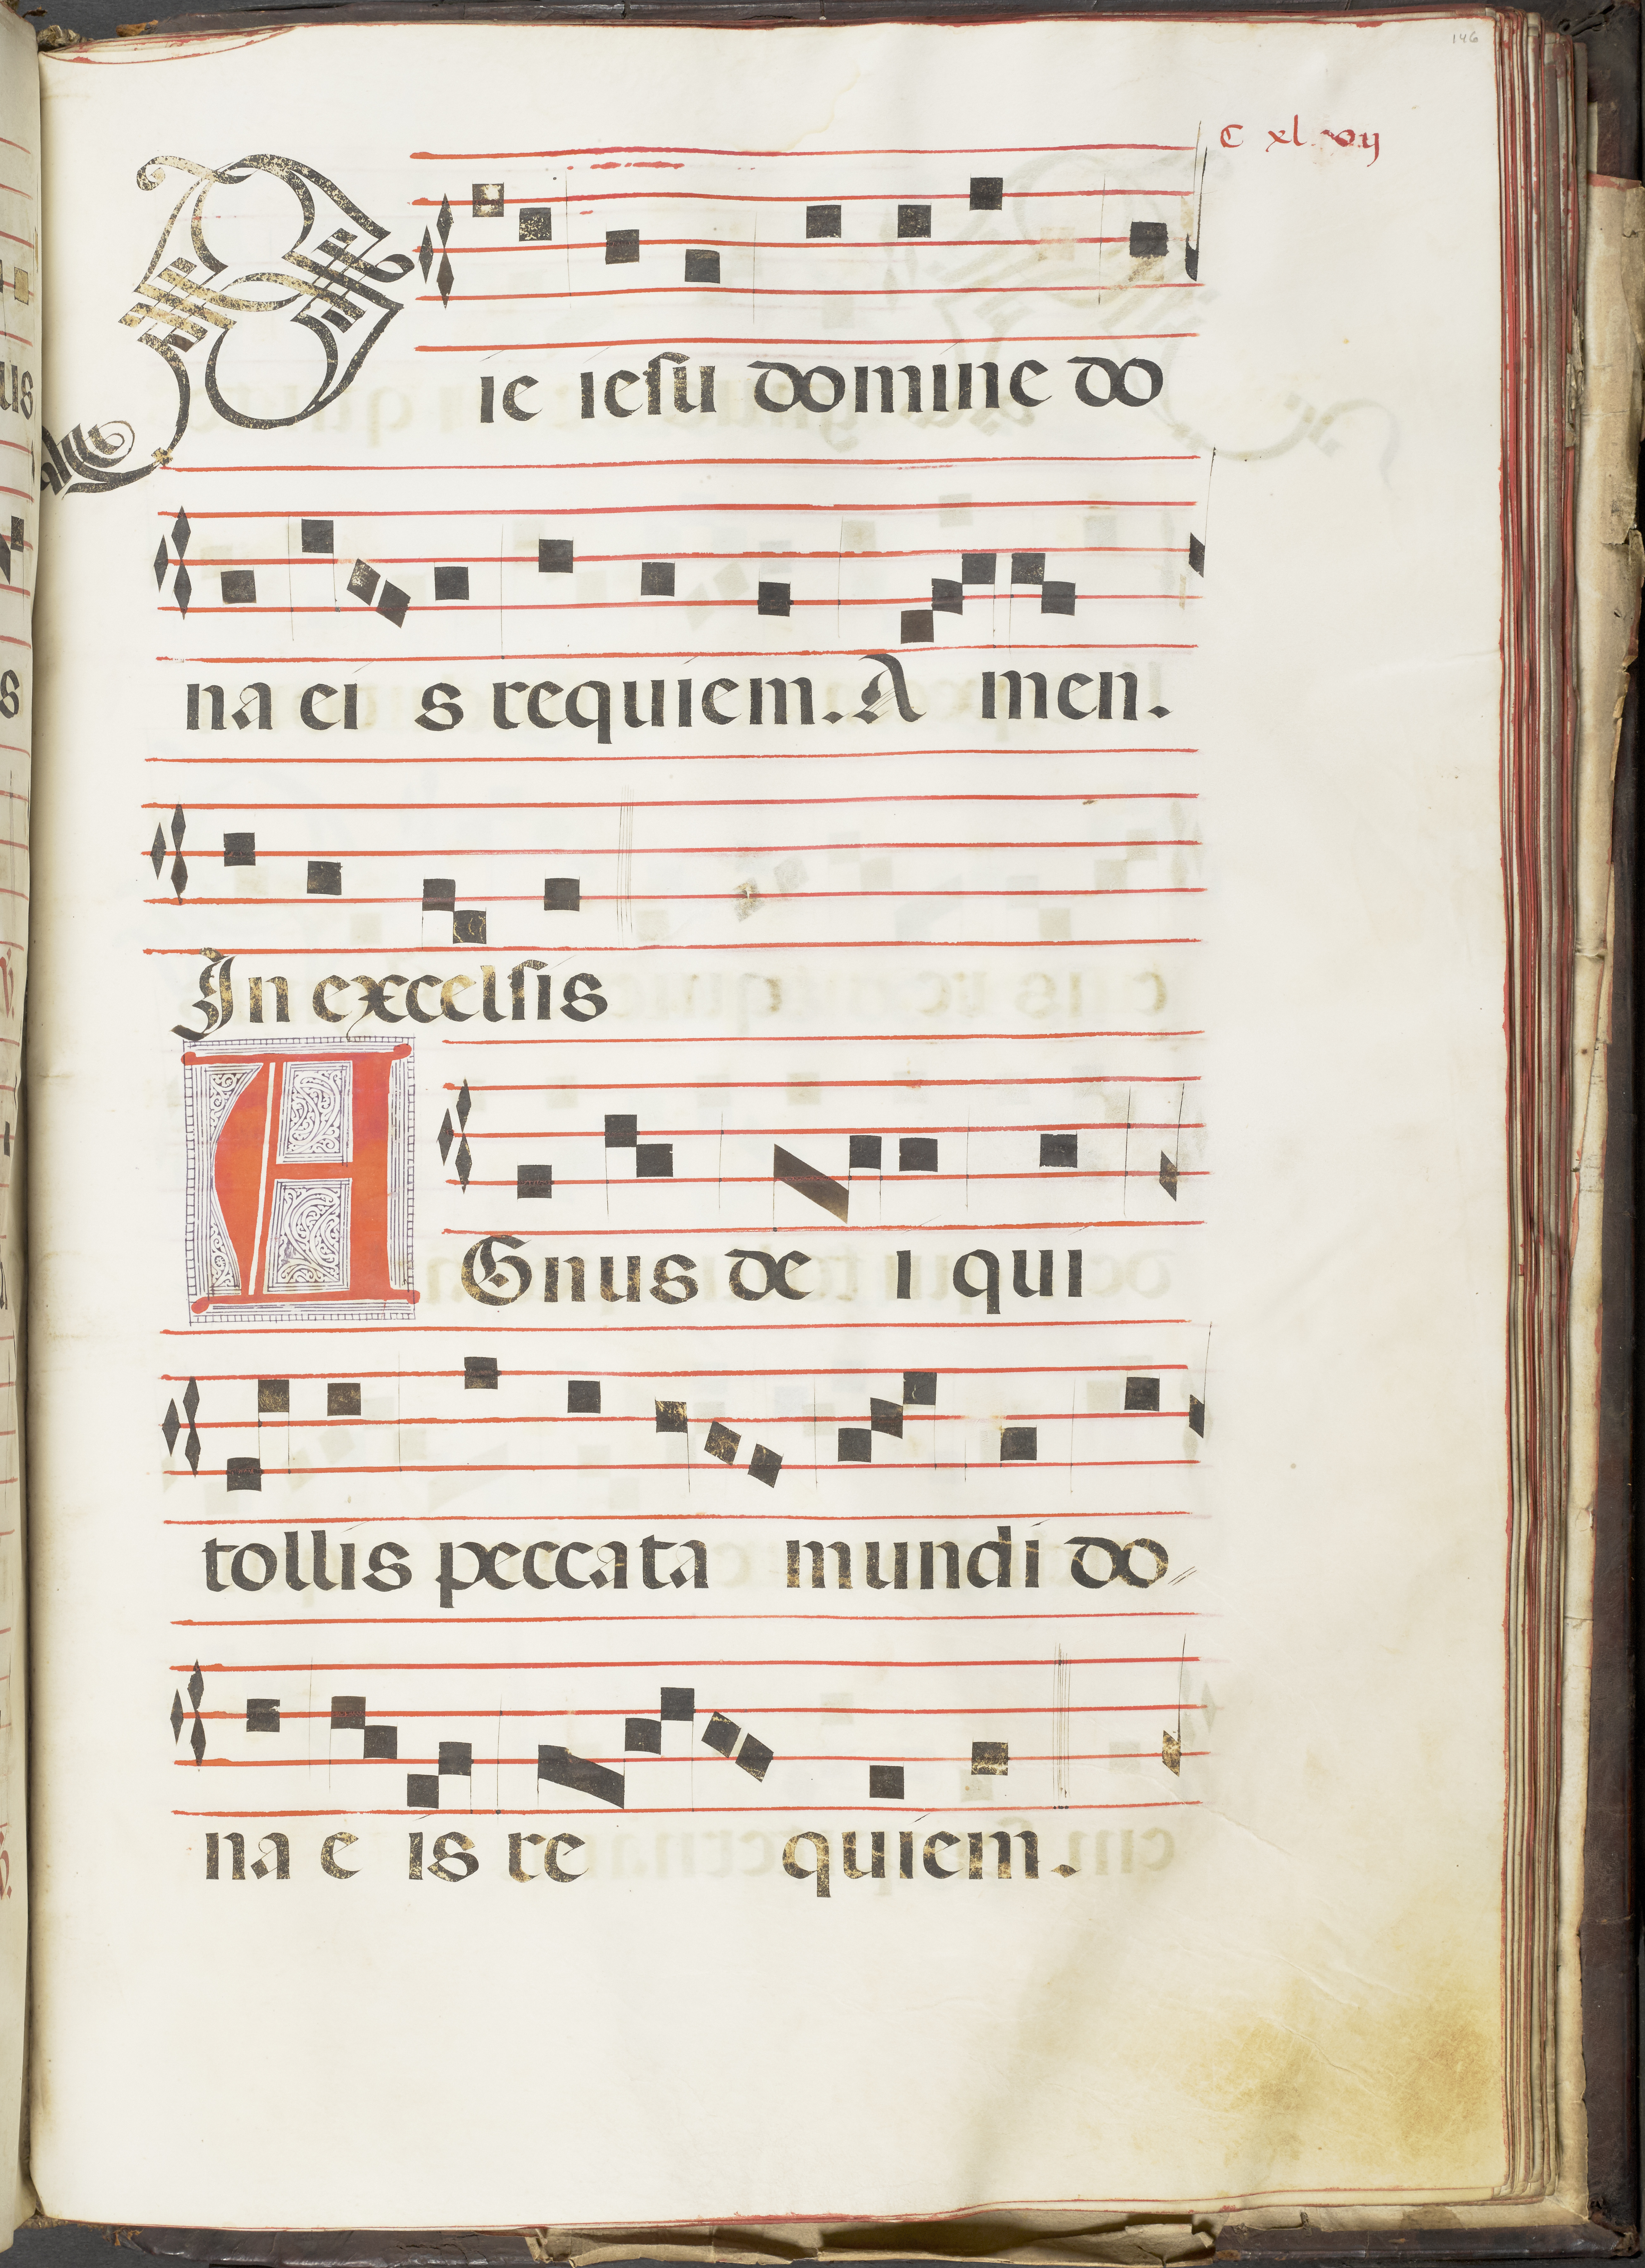 146
C xl vij
Pie iesu domine do
na ei s requiem. A men.
In excelsis
AGnus de i qui
tollis peccata mundi do
na e is re quiem.